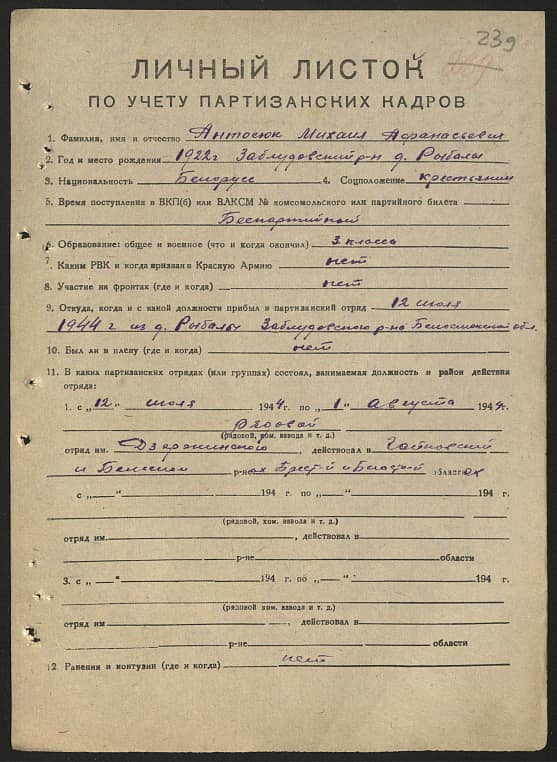 239
ЛИЧНЫЙ ЛИСТОК
ПО УЧЕТУ ПАРТИЗАНСКИХ КАДРОВ
1. Фамилия, имя и отчество Антосюк Михаил Афанасьевич
2. Год и место рождения 1922г Заблудовский р-н д. Рыбалы
3. Национальность Белорусс 4. Соцположение крестьянин
5. Время поступления в ВКП(б) или ВЛКСМ № комсомольского или партийного билета
Беспартийный
6. Образование: общее и военное (что и когда окончил) 3 класса
7. Каким РВК и когда призван в Красную Армию нет
8. Участие на фронтах (где и когда) нет
9. Откуда, когда и с какой должности прибыл в партизанский отряд 12 июля
1944 г из д. Рыбалы Заблудовского р-на Белостокской обл.
10. Был ли в плену (где и когда) нет
11. В каких партизанских отрядах (или группах) состоял, занимаемая должность и район действия
отряда:
1. с „12" июля 1944г. по „1" августа 1944г.
рядовой
(рядовой, ком. взвода и т. д.)
отряд им. Дзержинского, действовал в Гайновский
и р-нах Брест-й и Белост-й областях
с „—" 194 г. по „—" 194 г.
(рядовой, ком. взвода и т. д.)
отряд им. , действовал в
р-не области
3. с „—" 194 г. по „—" 194 г.
(рядовой ком. взвода и т. д.)
отряд им , действовал в
р-не области
12. Ранения и контузии (где и когда) нет